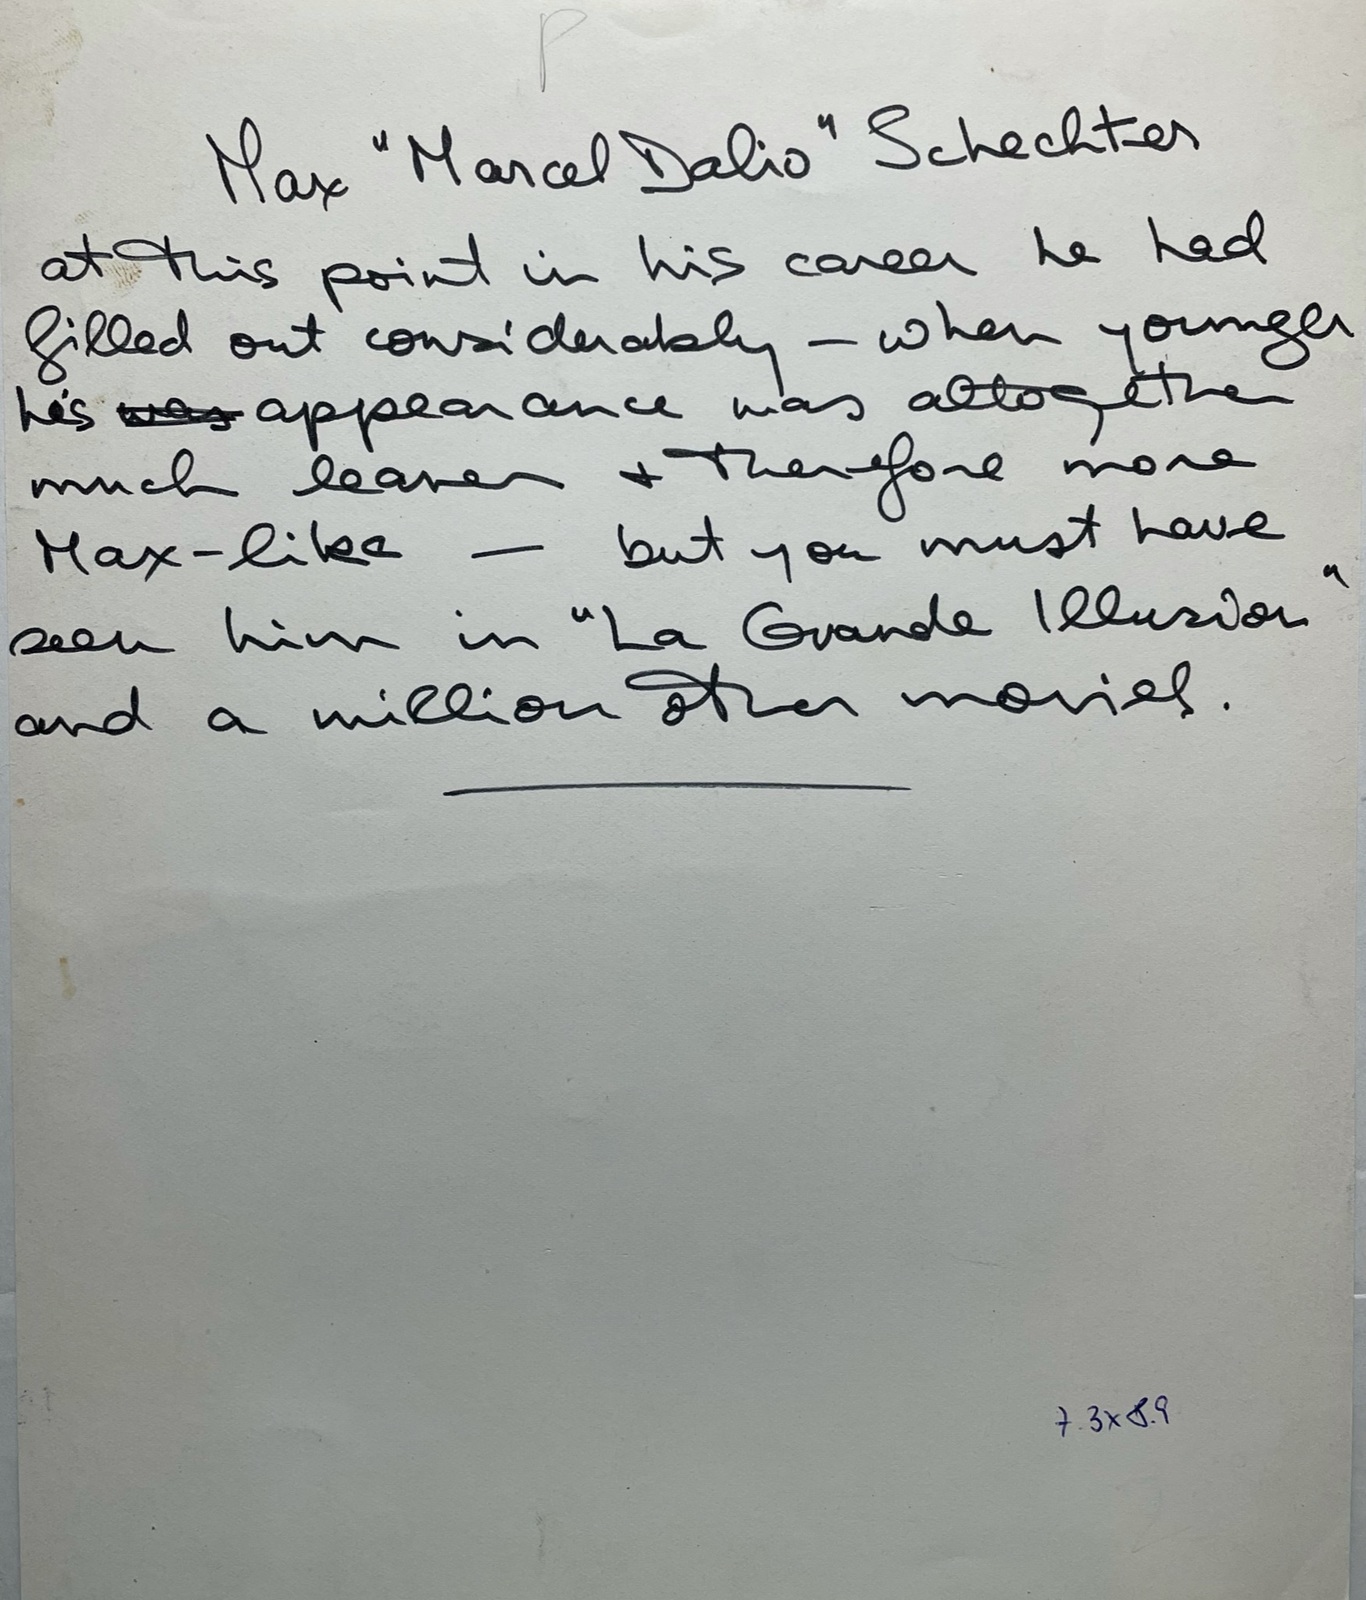 P
Max "Marcel Dalio" Schechter
at this point in his career he had
filled out considerably – when younger
his was appearance was altogether
much leaner + therefore more
Max-like — but you must have
seen him in "La Grande Illusion"
and a million other movies.
7.3x8.9